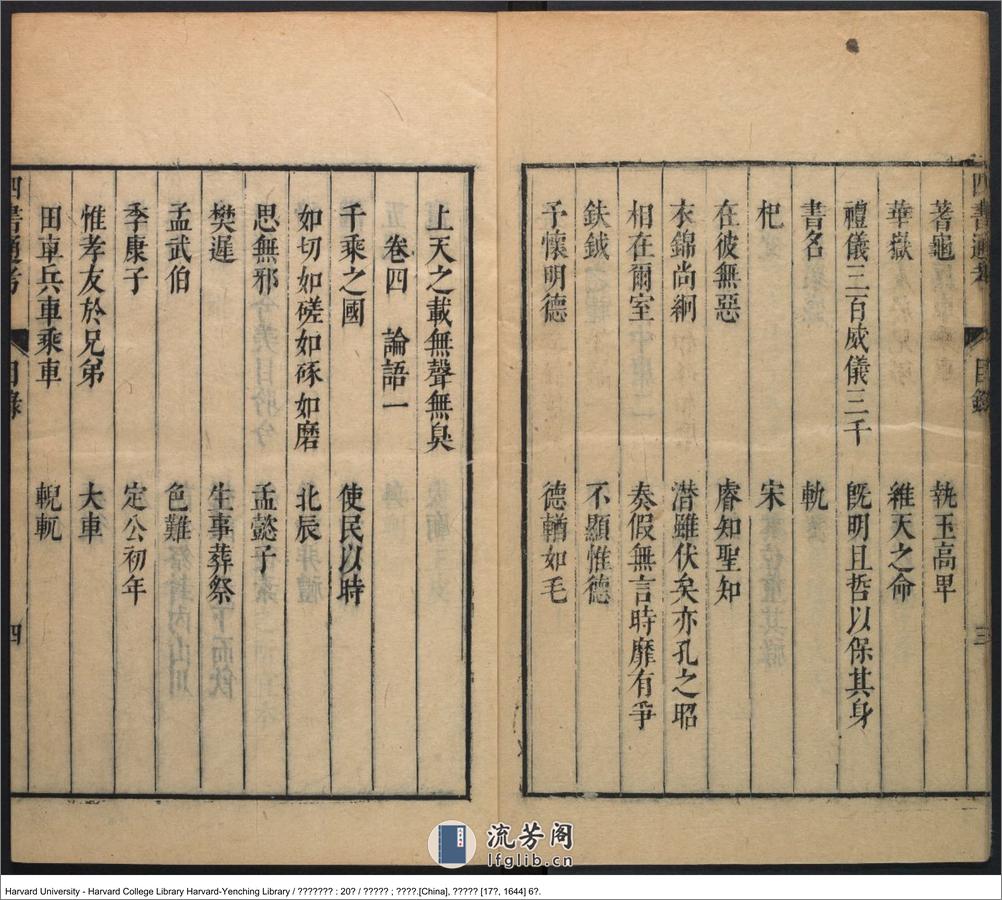 蓍龜 執玉高卑
華嶽 維天之命
禮儀三百威儀三千 旣明且哲以保其身
書名 軌
杞 宋
在彼無惡 睿知聖知
衣錦尚絅 潛雖伏矣亦孔之昭
相在爾室 奏假無言時靡有爭
鈇鉞 不顯惟德
予懷明德 德輶如毛
上天之載無聲無臭
卷四 論語一
千乘之國 使民以時
如切如磋如琢如磨 北辰
思無邪 孟懿子
樊遲 生事葬祭
孟武伯 色難
季康子 定公初年
惟孝友於兄弟 大車
田車兵車乘車 輗軏
四書通考 目錄 四
流芳阁
lfglib.cn
Harvard University - Harvard College Library Harvard-Yenching Library / ??????? : 20? / ????? ; ????.[China], ????? [17?, 1644] 6?.